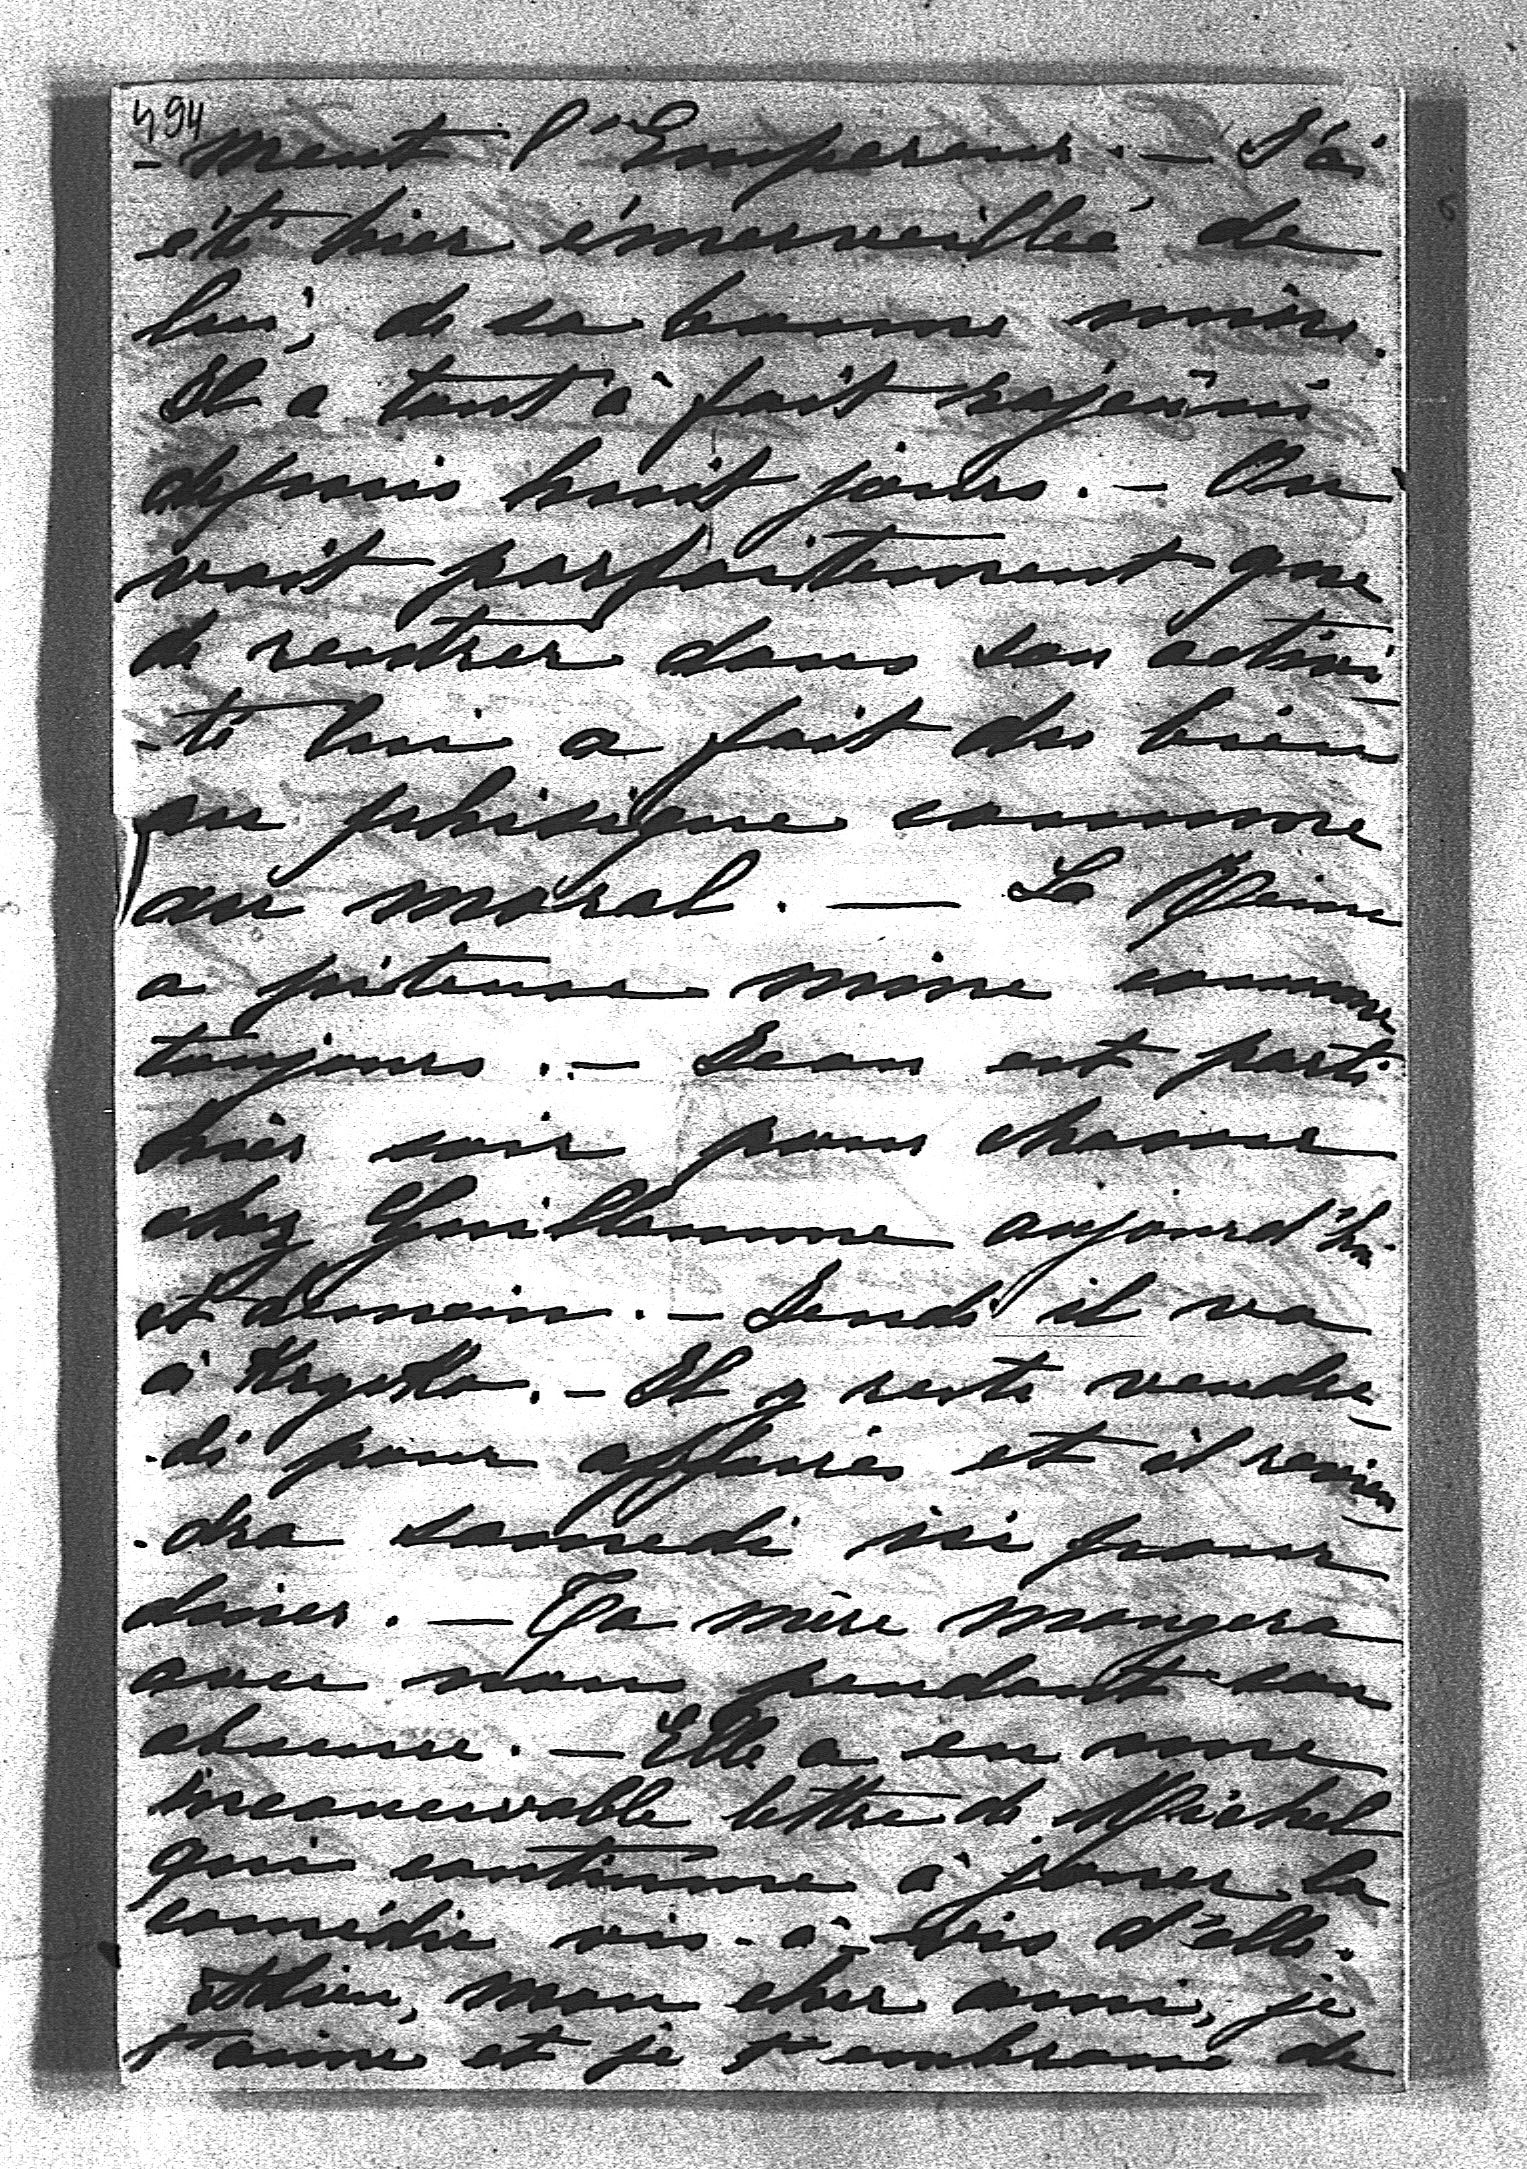 494
- ment l'Empereur. — J'ai
été hier émerveillée de
lui, de sa bonne mine.
Il a tout à fait rajeuni
depuis huit jours. — On
voit parfaitement que
de rentrer dans son activi
-té lui a fait du bien
au phisique comme
au moral. — La Reine
a piteuse mine comme
toujours. — Jean est parti
hier soir pour chasser
chez Guillaume aujourd'hui
et demain. — Jeudi il va
à . — Il y reste vendre
-di pour affaires et il revien
-dra samedi ici pour
diner. — Ta mère mangera
avec nous pendant son
absence. — Elle a eu une
inconcevable lettre de Michel
qui continue à jouer la
comédie vis-à-vis d'elle.
Adieu, mon cher ami, je
t'aime et je t'embrasse de